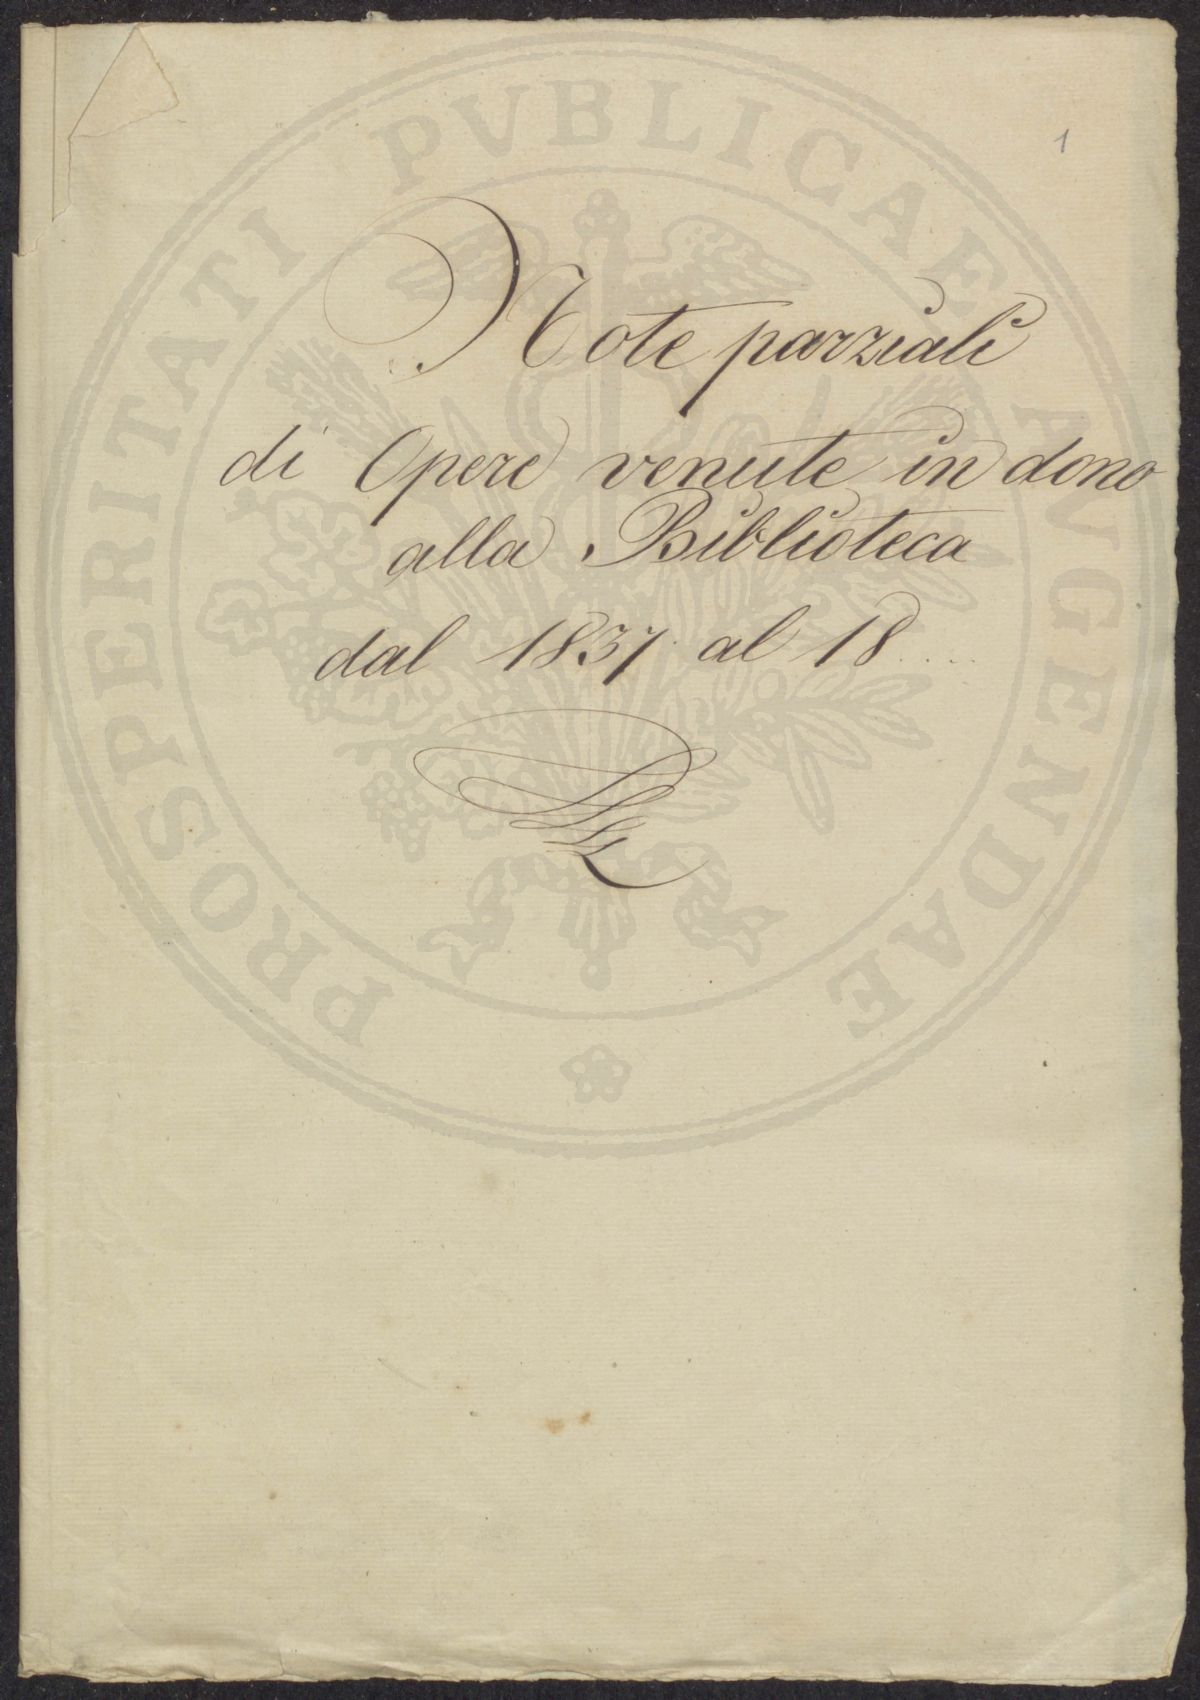 1
Note parziali
di Opere venute in dono
alla Biblioteca
dal 1837 al 18....
PROSPERITATI PVBLICAE AVGENDAE